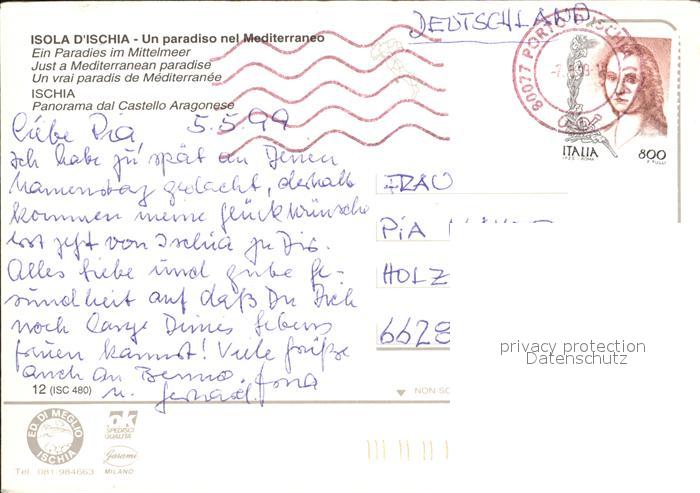 DEUTSCHLAND
ISOLA D'ISCHIA - Un paradiso nel Mediterraneo
Ein Paradies im Mittelmeer
Just a Mediterranean paradise
Un vrai paradis de Méditerranée
ISCHIA
Panorama dal Castello Aragonese
80077 PORTO D'ISCHIA
ITALIA
800
Liebe Pia 5.5.99
ich habe zu spät an Deinen
Namenstag gedacht, deshalb
kommen meine Glückwünsche
erst jetzt von Ischia zu Dir.
Alles Liebe und gute Ge-
sundheit auf daß Du Dich
noch lange Deines Lebens
freuen kannst! Viele Grüße
auch an Benno.
u. Gerhard
FRAU
PiA
HOLZ
6628
privacy protection
Datenschutz
12 (ISC 480)
NON SC
ED. DI MEGLIO
ISCHIA
Tel. 081 984663
ok
SPEDISCI
QUALITÀ
Garami
MILANO